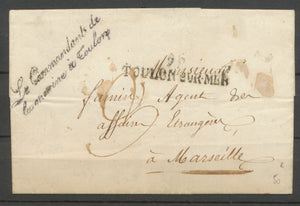 Le Commandant de
la marine à Toulon
Monsieur
TOULON-SUR-MER
famin, Agent des
affaires Etrangères
à Marseille